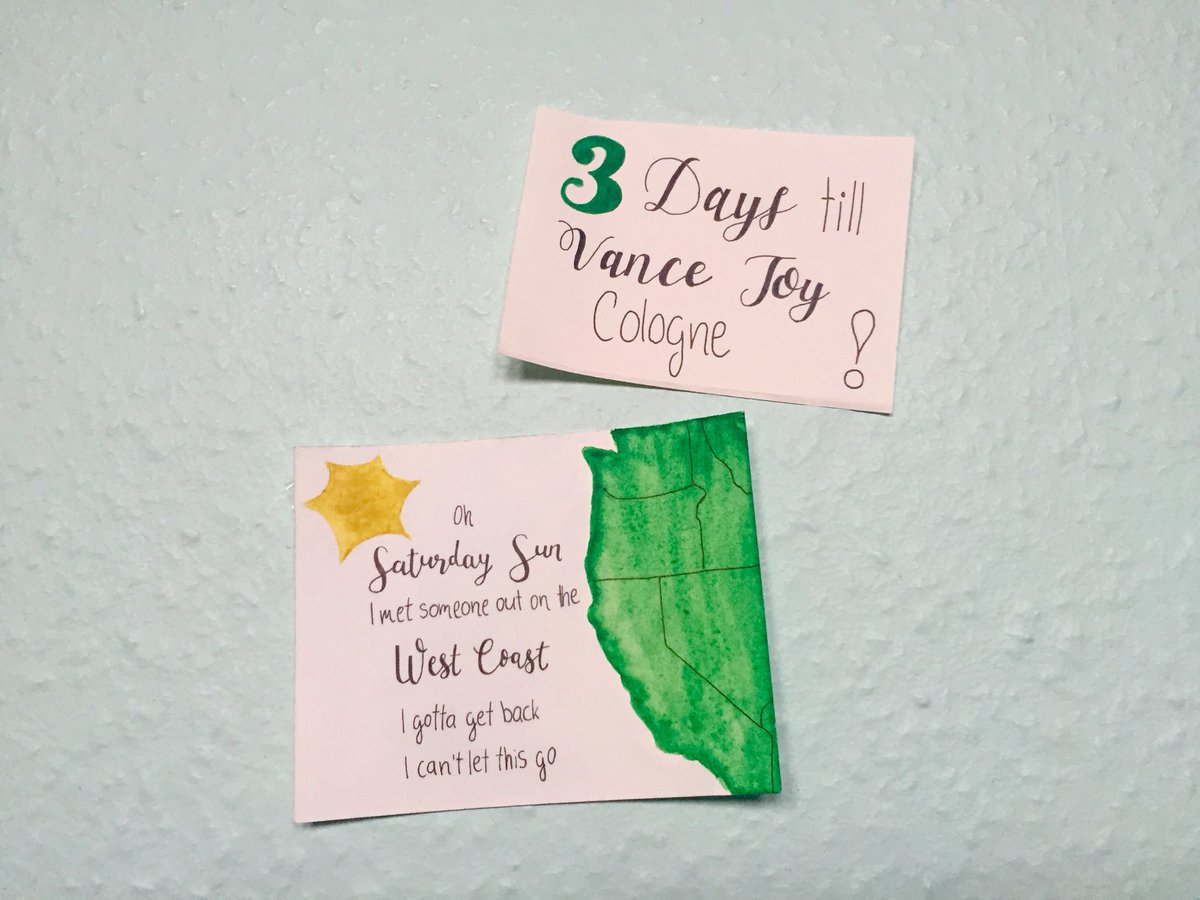 3 Days till
Vance Joy
Cologne !
Oh
Saturday Sun
I met someone out on the
West Coast
I gotta get back
I can't let this go